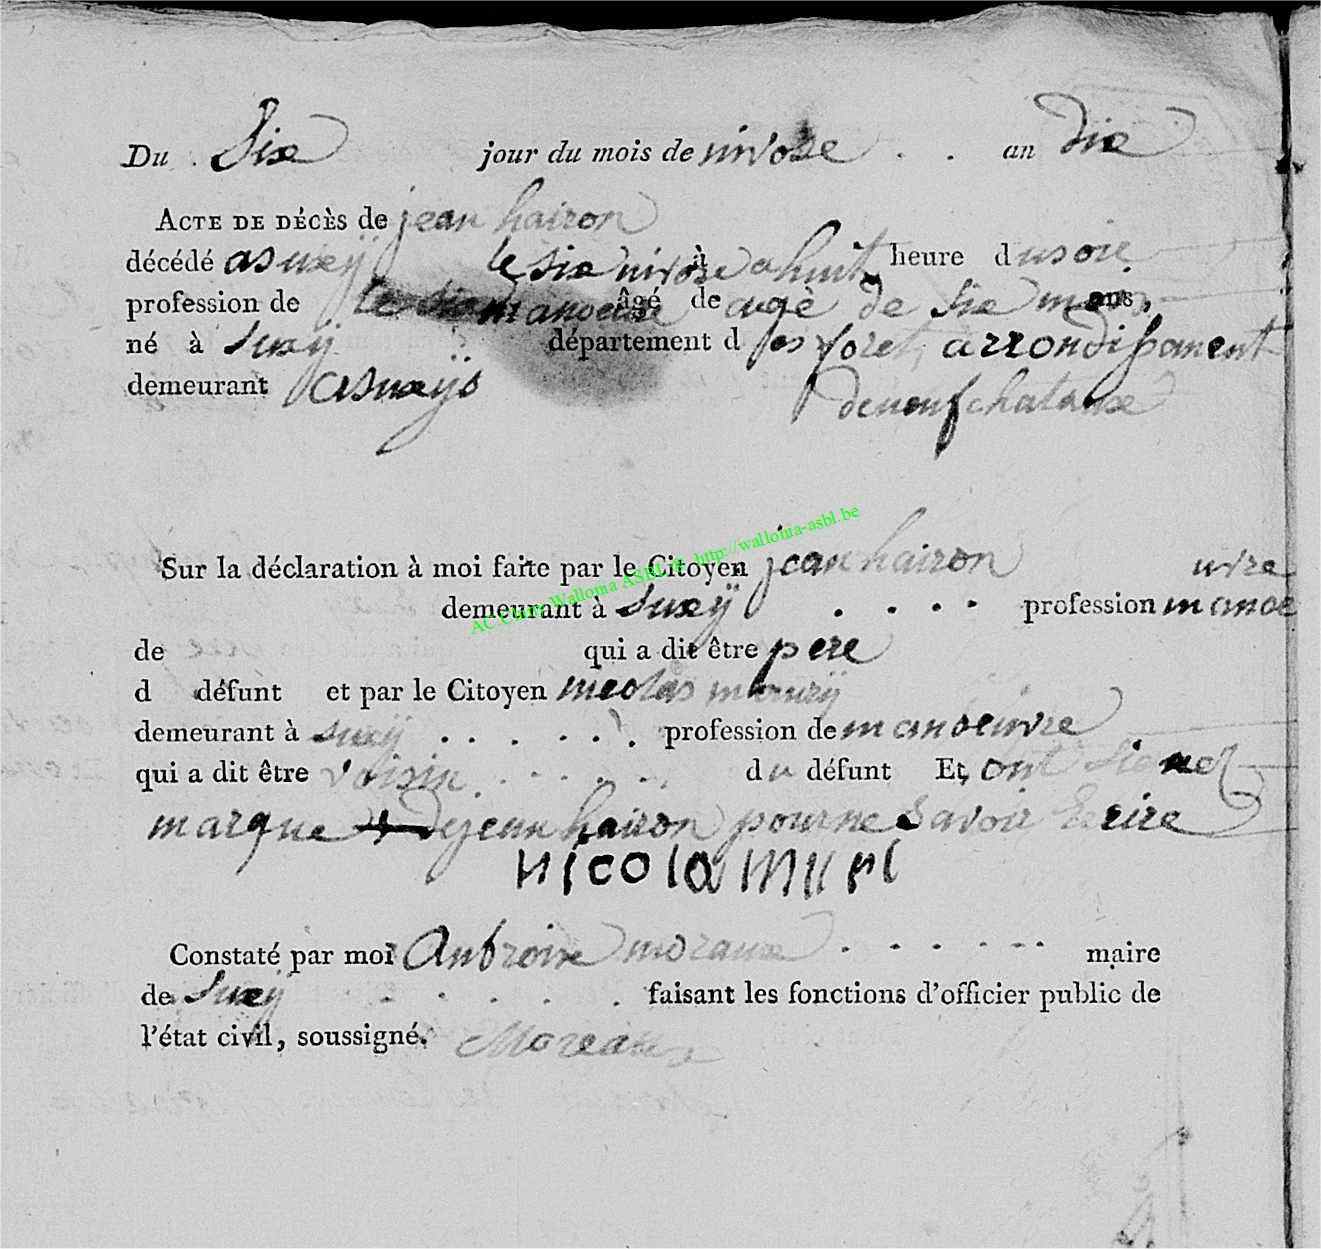 Du Six jour du mois de nivose an dix
ACTE DE DÉCÈS de jean hairon
décédé a suxÿ le six nivose à a huit heure d usoir
profession de manoeuvre âgé de agè de six mois ans,
né à Suxÿ département d es foret, arrondissanent
demeurant a suxÿs de neufchataux
AC Chiny Wallonia ASBL © http://wallonia-asbl.be
Sur la déclaration à moi faite par le Citoyen jean hairon
demeurant à Suxÿ profession manoe uvre
de qui a dit être pere
d défunt et par le Citoyen nicolas
demeurant à suxÿ profession de manoeuvre
qui a dit être voisin d u défunt Et, ont signe
marque + de jean hairon pour ne savoir Ecrire
nicola
Constaté par moi Anbroise moraux maire
de Suxÿ faisant les fonctions d'officier public de
l'état civil, soussigné. Moreaux